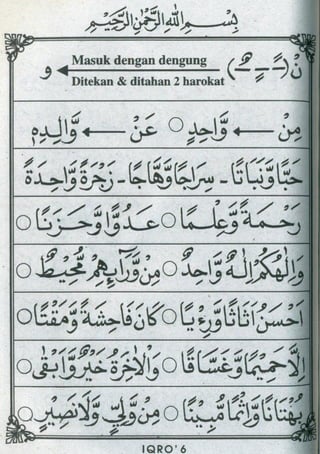 بِسْمِ اللّٰهِ الرَّحْمٰنِ الرَّحِيْمِ
نْ (ـًـ ـٍـ ـٌـ) ← و
Masuk dengan dengung
Ditekan & ditahan 2 harokat
مِنْ ← وَّاحِدٍ ○ عَنْ ← وَّالِدِهٖ
حَبًّا وَّنَبَاتًا - سِرَاجًا وَّهَّاجًا - زَجْرَةٌ وَّاحِدَةٌ
رَحْمَةً وَّعِلْمًا ○ عَدُوًّا وَّحَزَنًا ○
وَاِلٰهُكُمْ اِلٰهٌ وَّاحِدٌ ○ مِنْ وَّرَآئِهِمْ مُّحِيْطٌ ○
اَحْسَنُ اَثَاثًا وَّرِءْيًا ○ كَانَ فَاحِشَةً وَّمَقْتًا ○
اِلَّا حَمِيْمًا وَّغَسَّاقًا ○ وَالْاٰخِرَةُ خَيْرٌ وَّاَبْقٰى ○
بُهْتَانًا وَّاِثْمًا مُّبِيْنًا ○ مِنْ وَّلِيٍّ وَّلَا نَصِيْرٍ ○
IQRO'6